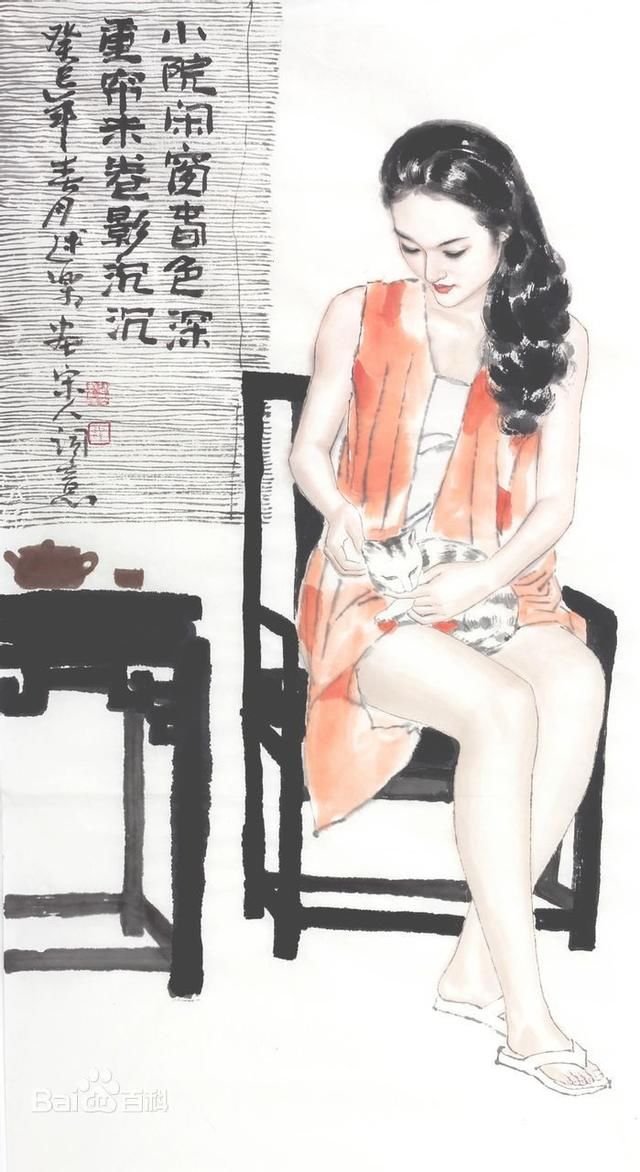 小院闲窗春色深
重帘未卷影沉沉
癸巳年春月 宋人词意
Bai du 百科